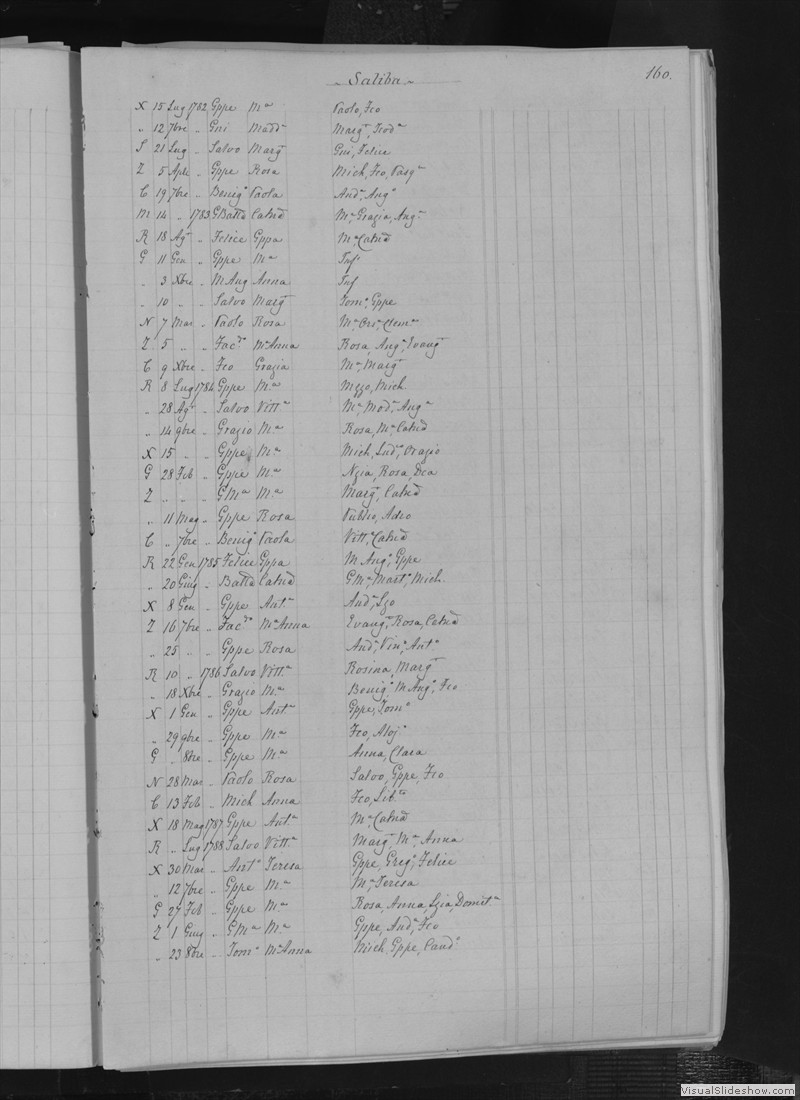 160.
Saliba
X 15 Lug 1782 Gppe Mᵃ Paolo, Fco
„ 12 7bre „ Gni Maddᵃ Margᵗᵃ, Teodᵃ
S 21 Lug „ Salvo Margᵗᵃ Gni, Felice
Z 5 Aple „ Gppe Rosa Mich, Fco, Pasqᵉ
C 19 7bre „ Benigᵒ Paola Andᵃ, Angᵒ
M 14 „ 1783 GBatta Catnᵃ Mᵃ Grazia, Angᵃ
R 18 Agᵗᵒ „ Felice Gppa Mᵃ Catnᵃ
G 11 Gen „ Gppe Mᵃ Inf
„ 3 Xbre „ M Ang Anna Inf
„ 10 „ „ Salvo Margᵗᵃ Tomᵒ, Gppe
N 7 Mar „ Paolo Rosa Mᵃ, Orsᵃ, Clemᵃ
Z 5 „ „ Facᵈᵒ Mᵃ Anna Rosa, Angᵃ, Evangᵗᵃ
C 9 Xbre „ Fco Grazia Mᵃ, Margᵗᵃ
R 8 Lug 1784 Gppe Mᵃ Mzzo, Mich
„ 28 Agᵗᵒ „ Salvo Vittᵃ Mᵃ Modᵃ, Angᵃ
„ 14 9bre „ Grazio Mᵃ Rosa, Mᵃ Catnᵃ
X 15 „ „ Gppe Mᵃ Mich, Ludᵃ, Orazio
G 28 Feb „ Gppe Mᵃ Nzia, Rosa, Dca
Z „ „ „ GMᵃ Mᵃ Margᵗᵃ, Catnᵃ
„ 11 Mag „ Gppe Rosa Publio, Adeo
C „ 7bre „ Benigᵒ Paola Vittᵃ, Catnᵃ
R 22 Gen 1785 Felice Gppa M Angᵒ, Gppe
„ 20 Giug „ Batta Catnᵃ GMᵃ Martᵒ, Mich.
X 8 Gen „ Gppe Antᵃ Andᵃ, Lzo
Z 16 7bre „ Facᵈᵒ Mᵃ Anna Evangᵗᵃ, Rosa, Catnᵃ
„ 25 „ „ Gppe Rosa Andᵃ, Vinᵒ, Antᵒ
R 10 „ 1786 Salvo Vittᵃ Rosina, Margᵗᵃ
„ 18 Xbre „ Grazio Mᵃ Benigᵒ, M Angᵒ, Fco
X 1 Gen „ Gppe Antᵃ Gppe, Tomᵒ
„ 29 9bre „ Gppe Mᵃ Fco, Alojᵒ
G „ 8bre „ Gppe Mᵃ Anna, Clara
N 28 Mar „ Paolo Rosa Salvo, Gppe, Fco
C 13 Feb „ Mich Anna Fco, Libᵗᵃ
X 18 Mag 1787 Gppe Antᵃ Mᵃ Catnᵃ
R „ Lug 1788 Salvo Vittᵃ Margᵗᵃ, Mᵃ, Anna
X 30 Mar „ Antᵒ Teresa Gppe, Gregᵒ, Felice
„ 12 7bre „ Gppe Mᵃ Mᵃ Teresa
G 27 Feb „ Gppe Mᵃ Rosa, Anna, Lzia, Domitᵃ
Z 1 Giug „ GMᵃ Mᵃ Gppe, Andᵃ, Fco
„ 23 8bre „ Tomᵒ Mᵃ Anna Mich, Gppe, Candᵒ
VisualSlideshow.com